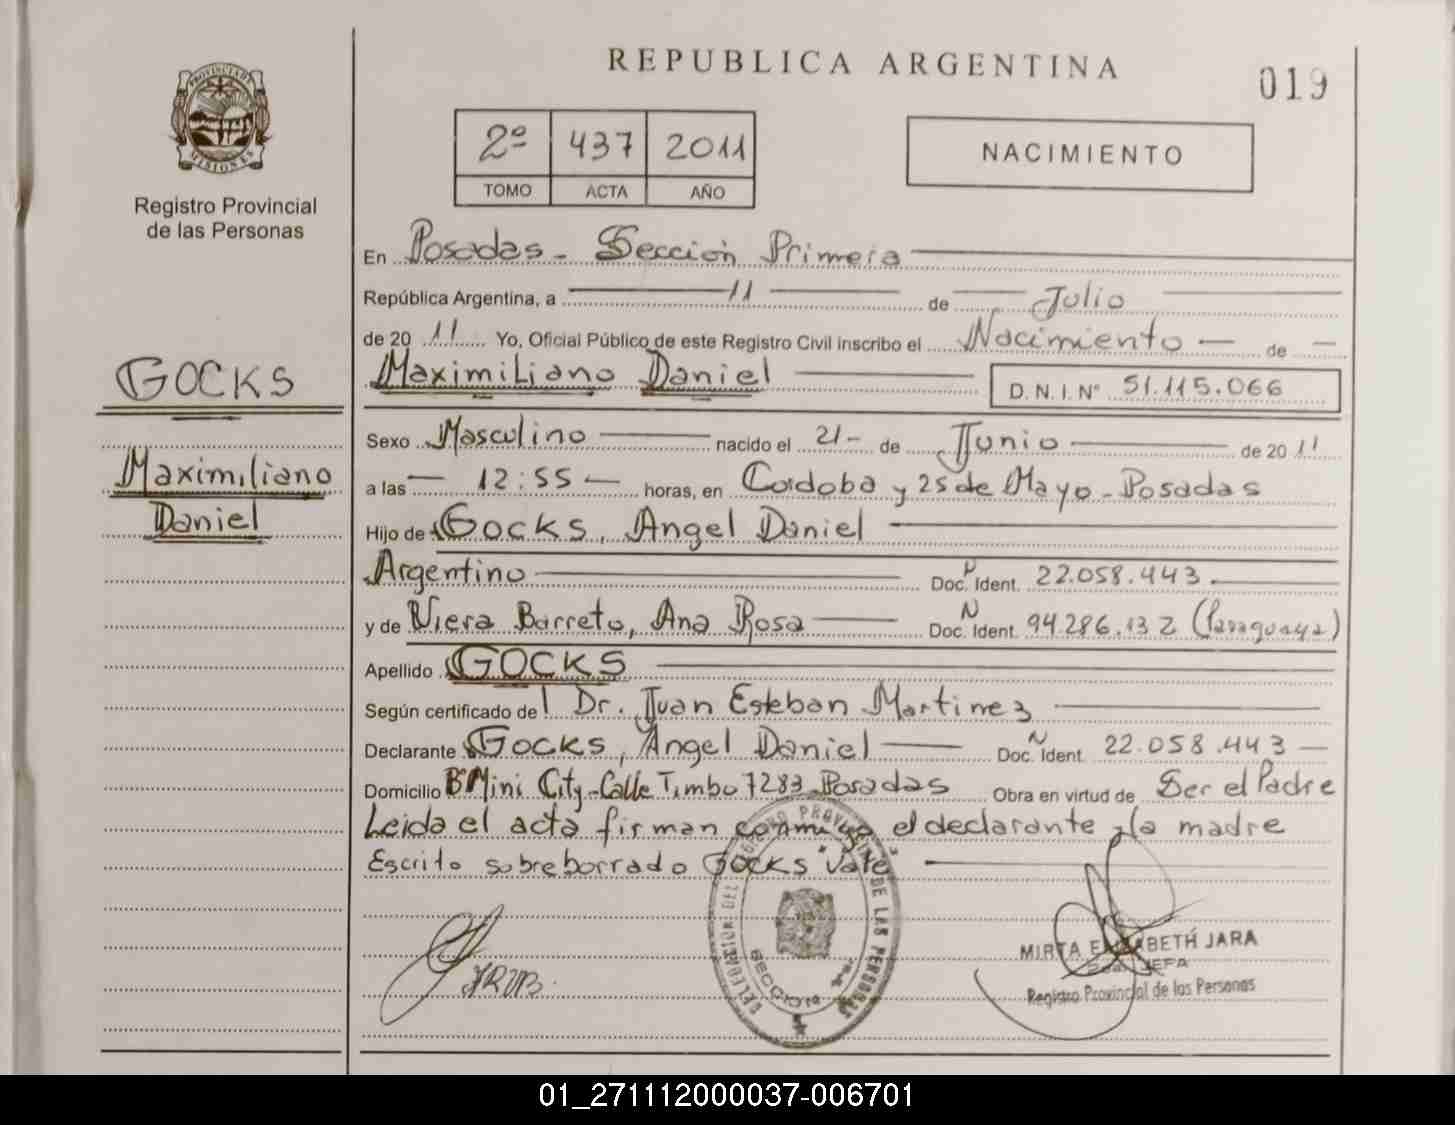 REPUBLICA ARGENTINA
019
PROVINCIA DE
MISIONES
Registro Provincial
de las Personas
2º 437 2011
TOMO ACTA AÑO
NACIMIENTO
GOCKS
Maximiliano
Daniel
En Posadas - Sección Primera
República Argentina, a 11 de Julio
de 20 11 Yo, Oficial Público de este Registro Civil inscribo el Nacimiento - de -
Maximiliano Daniel D.N.I. Nº 51.115.066
Sexo Masculino nacido el 21- de Junio de 20 11
a las - 12:55 - horas, en Cordoba y 25 de Mayo - Posadas
Hijo de GOCKS, Angel Daniel
Argentino Doc. Ident. 22.058.443
y de Viera Barreto, Ana Rosa Doc. Ident. 94.286.132 (Paraguaya)
Apellido GOCKS
Según certificado del Dr. Juan Esteban Martinez
Declarante GOCKS, Angel Daniel Doc. Ident. 22.058.443
Domicilio Bº Mini City - Calle Timbo 7283 Posadas Obra en virtud de Ser el Padre
Leida el acta firman conmigo el declarante y la madre
Escrito sobreborrado GOCKS "vale"
DELEGACION DEL REGISTRO PROVINCIAL DE LAS PERSONAS
SECCION 1ª
MIRTA ELIZABETH JARA
JEFA
Registro Provincial de las Personas
01_271112000037-006701